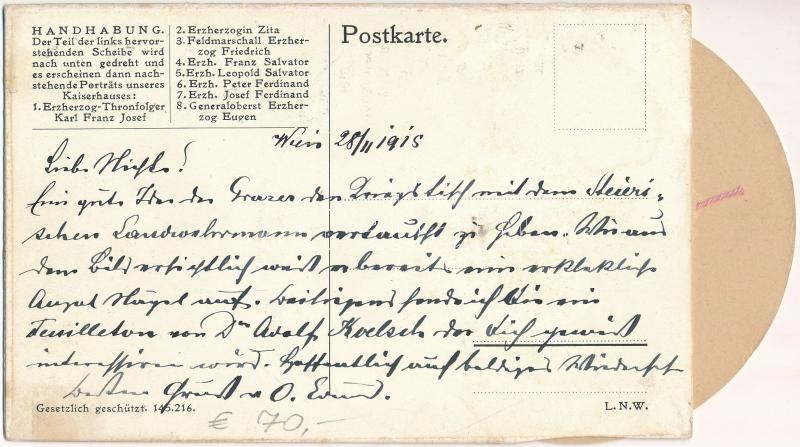 HANDHABUNG.
Der Teil der links hervor-
stehenden Scheibe wird
nach unten gedreht und
es erscheinen dann nach-
stehende Porträts unseres
Kaiserhauses:
1. Erzherzog-Thronfolger
Karl Franz Josef
2. Erzherzogin Zita
3. Feldmarschall Erzher-
zog Friedrich
4. Erzh. Franz Salvator
5. Erzh. Leopold Salvator
6. Erzh. Peter Ferdinand
7. Erzh. Josef Ferdinand
8. Generaloberst Erzher-
zog Eugen
Postkarte.
Wien 28/11 1915
Liebe Nichte!
Eine gute Idee der Grazer den Kriegstisch mit dem Steiri-
schen Landwehrmann vertauscht zu haben. Wie aus
dem Bild ersichtlich weist er bereits eine erkleckliche
Anzal Nägel auf. sende ich Dir ein
Feuilleton von Dr. Adolf Koelsch der Dich gewiss
interessiren wird. Hoffentlich auf baldiges Wiederseh
besten Gruß v O.
Gesetzlich geschützt. 145.216.
L. N. W.
€ 70,-